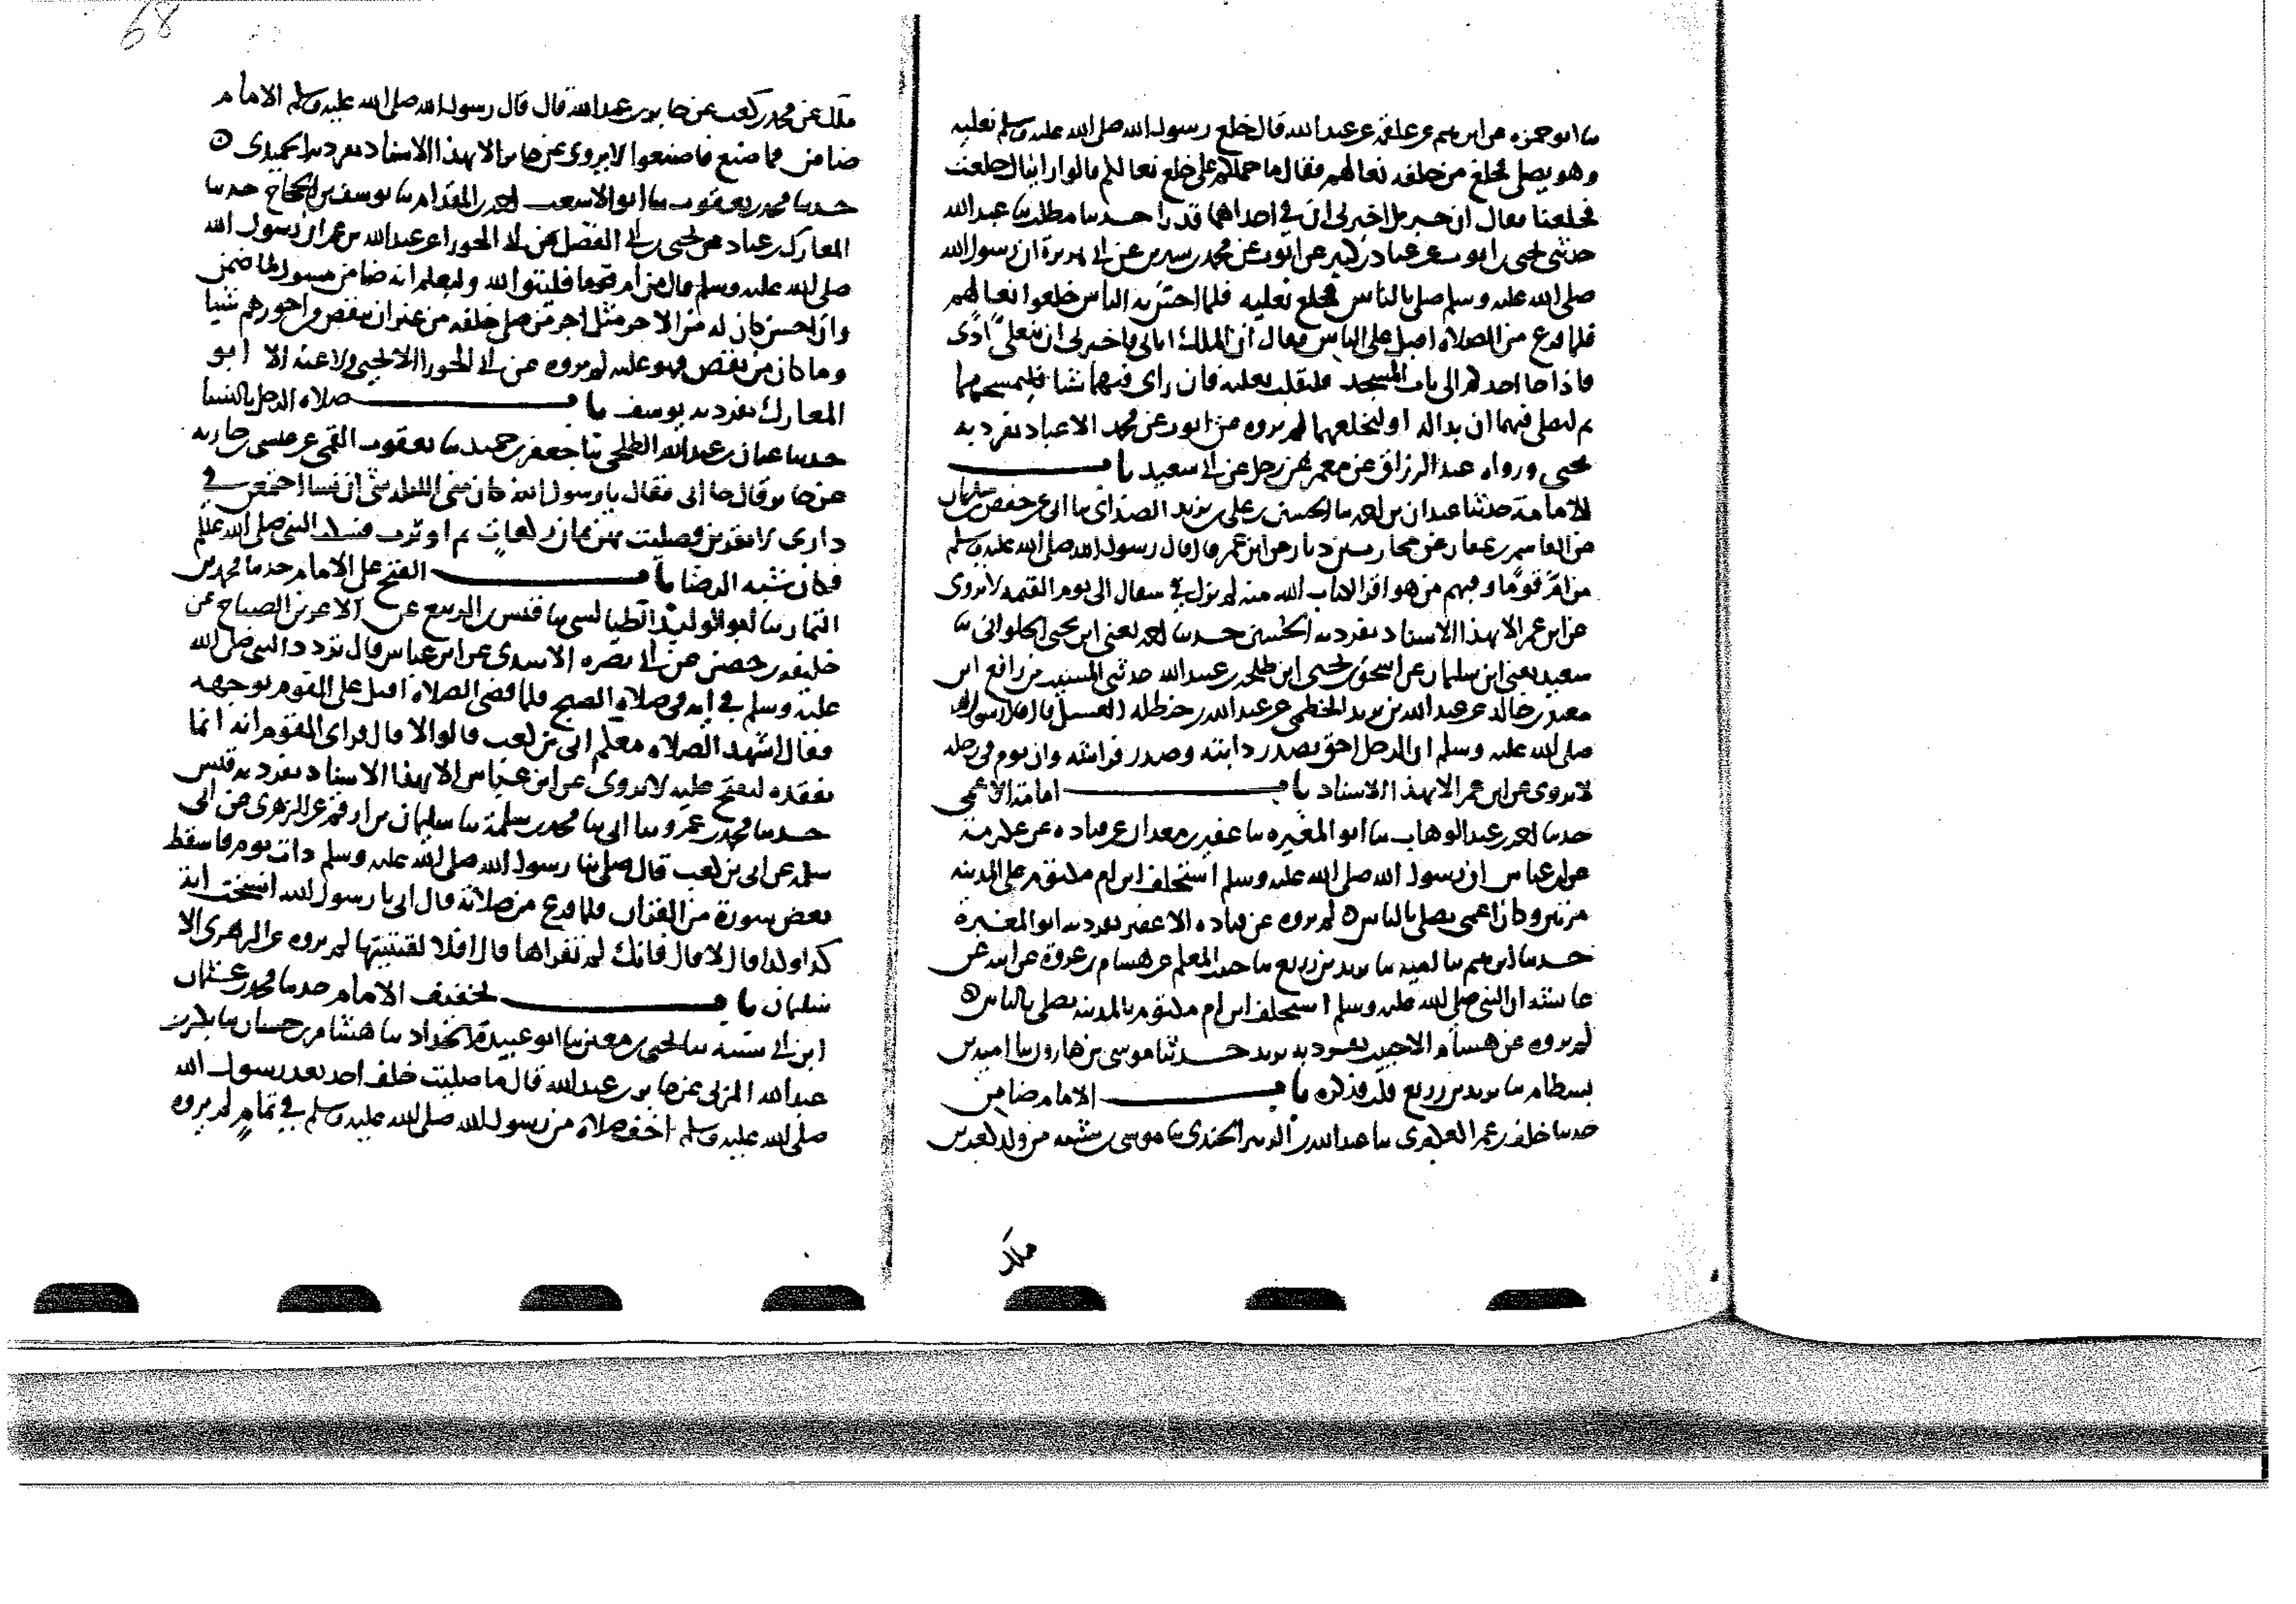 ثنا ابو حمزه عن ابرهيم عن علقمه عن عبد الله قال خلع رسول الله صلى الله عليه وسلم نعليه
وهو يصلي فخلع من خلفه نعالهم فقال ما حملكم على خلع نعالكم قالوا رايناك خلعت
فخلعنا فقال ان جبريل اخبرني ان في احداهما قذرا حدثنا مطلب ثنا عبد الله
حدثني يحيى بن ايوب عن عباد بن كثير عن ايوب عن محمد بن سيرين عن ابي هريرة ان رسول الله
صلى الله عليه وسلم صلى بالناس فخلع نعليه فلما احس به الناس خلعوا نعالهم
فلما فرغ من الصلاة اقبل على الناس فقال ان الملك اتاني فاخبرني ان بنعلي اذى
فاذا جا احدكم الى باب المسجد فليقلب نعليه فان راى فيهما شيا فليمسحهما
ثم ليصلي فيهما ان بدا له او ليخلعهما لم يروه عن ايوب عن محمد الا عباد تفرد به
يحيى ورواه عبد الرزاق عن معمر عن رجل عن ابي سعيد باب
الامامة حدثنا عبدان بن احمد ثنا الحسين بن علي بن يزيد الصدائي ثنا ابي عن حفص بن سليمان
عن الهيثم بن عقاب عن محارب بن دثار عن ابن عمر قال قال رسول الله صلى الله عليه وسلم
من ام قوما وفيهم من هو اقرا لكتاب الله منه لم يزل في سفال الى يوم القيمه لا يروى
عن ابن عمر الا بهذا الاسناد تفرد به الحسين حدثنا احمد يعني ابن يحيى الحلواني ثنا
سعيد يعني ابن سليمان عن اسحق بن يحيى ابن طلحه بن عبيد الله حدثني المسيب بن رافع ابن
معبد بن خالد عن عبد الله بن يزيد الخطمي عن عبد الله بن حنظله الغسيل قال قال رسول الله
صلى الله عليه وسلم ان الرجل احق بصدر دابته وصدر فراشه وان يوم في رحله
لا يروى عن ابن عمر الا بهذا الاسناد باب امامة الاعمى
حدثنا احمد بن عبد الوهاب ثنا ابو المغيره ثنا عفير بن معدان عن قتاده عن عكرمة
عن ابن عباس ان رسول الله صلى الله عليه وسلم استخلف ابن ام مكتوم على المدينه
مرتين وكان اعمى يصلي بالناس لم يروه عن قتاده الا عفير تفرد به ابو المغيرة
حدثنا ابرهيم ثنا اميه ثنا يزيد بن زريع ثنا حبيب المعلم عن هشام بن عروة عن ابيه عن
عائشة ان النبي صلى الله عليه وسلم استخلف ابن ام مكتوم بالمدينه يصلي بالناس
لم يروه عن هشام الا حبيب تفرد به يزيد حدثنا موسى بن هارون ثنا امية بن
بسطام ثنا يزيد بن زريع قلت فذكره باب الامام ضامن
حدثنا خلف بن عمر العكبري ثنا عبد الله بن الزبير الحميدي ثنا موسى بن شيبه من ولد كعب بن
ملك
68
ملك عن محمد بن كعب عن جابر بن عبد الله قال قال رسول الله صلى الله عليه وسلم الامام
ضامن فما صنع فاصنعوا لا يروى عن جابر الا بهذا الاسناد تفرد به الحميدي
حدثنا محمد بن يعقوب ثنا ابو الاشعث احمد بن المقدام ثنا يوسف بن الحجاج حدثنا
المعارك بن عباد عن يحيى بن ابي الفضل عن ابي الجوزا عن عبد الله بن عمر ان رسول الله
صلى الله عليه وسلم قال من ام قوما فليتق الله وليعلم انه ضامن مسول لما ضمن
وان احسن كان له من الاجر مثل اجر من صلى خلفه من غير ان ينقص من اجورهم شيا
وما كان من نقص فهو عليه لم يروه عن ابي الجوزا الا يحيى ولا عنه الا ابو
المعارك تفرد به يوسف باب صلاة الرجل بالنسا
حدثنا عثمان بن عبيد الله الطلحي ثنا جعفر بن حميد ثنا يعقوب القمي عن عيسى بن جاريه
عن جابر قال جا ابي فقال يا رسول الله كان مني الليلة شي ان نسا اجتمعن في
داري لا يقرين فصليت بهن ثمان ركعات ثم اوترت فسكت النبي صلى الله عليه وسلم
فكان شبه الرضا باب الفتح على الامام حدثنا محمد بن
التمار ثنا ابو الوليد الطيالسي ثنا قيس بن الربيع عن الاغر بن الصباح عن
خليفه بن حصين عن ابي نصره الاسدي عن ابن عباس قال تردد النبي صلى الله
عليه وسلم في ايه في صلاة الصبح فلما قضى الصلاة اقبل على القوم بوجهه
فقال اشهد الصلاة معكم ابي بن كعب قالوا لا قال فراى القوم انه انما
تفقده ليفتح عليه لا يروى عن ابن عباس الا بهذا الاسناد تفرد به قيس
حدثنا محمد بن عمرو ثنا ابي ثنا محمد بن سلمة ثنا سليمان بن ارقم عن الزهري عن ابي
سلمه عن ابي بن كعب قال صلى بنا رسول الله صلى الله عليه وسلم ذات يوم فاسقط
بعض سورة من القران فلما فرغ من صلاته قال ابي يا رسول الله انسخت اية
كذا وكذا قال لا قال فانك لم تقراها قال افلا لقنتنيها لم يروه عن الزهري الا
سليمان باب تخفيف الامام حدثنا محمد بن عثمان
ابن ابي شيبه ثنا يحيى بن معين ثنا ابو عبيدة الحداد ثنا هشام بن حسان ثنا بكر بن
عبد الله المزني عن جابر بن عبد الله قال ما صليت خلف احد بعد رسول الله
صلى الله عليه وسلم اخف صلاة من رسول الله صلى الله عليه وسلم في تمام لم يروه